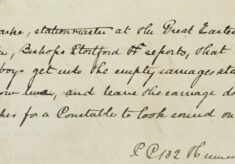 stationmaster at the Great Easte
Bishops Stortford Hts reports, that
boys get into the empty carriages sta
ow line, and leave the carriage do
hes for a Constable to look round on
P C 132